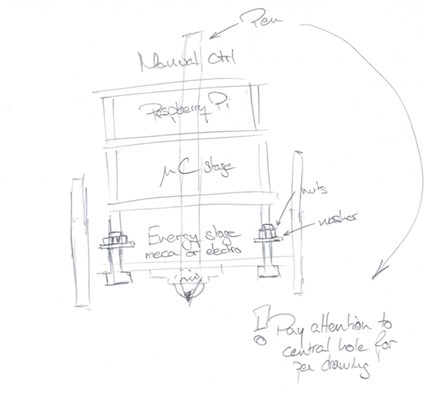 Pen
Manual Ctrl
Raspberry Pi
μC stage
nuts
washer
Energy stage
meca or electro
! Pay attention to
central hole for
pen drawing